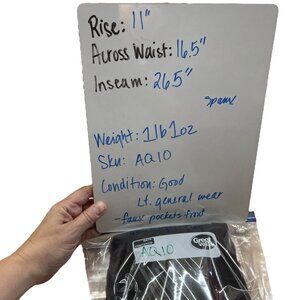 Rise: 11"
Across Waist: 16.5"
Inseam: 26.5"
Spanx
Weight: 1lb 1oz
Sku: AQ10
Condition: Good
Lt. general wear
- faux pockets front
AQ10